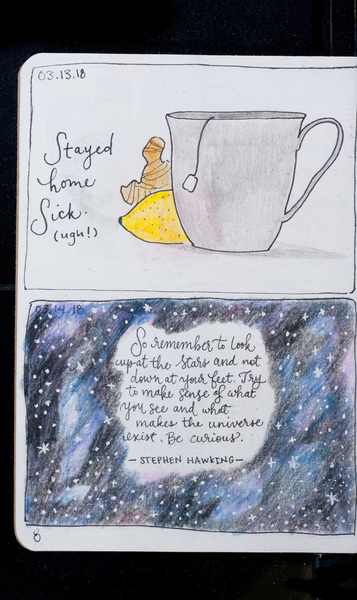 03.13.18
Stayed
home
Sick.
(ugh!)
03.14.18
So remember to look
up at the stars and not
down at your feet. Try
to make sense of what
you see and what
makes the universe
exist. Be curious.
- STEPHEN HAWKING -
8